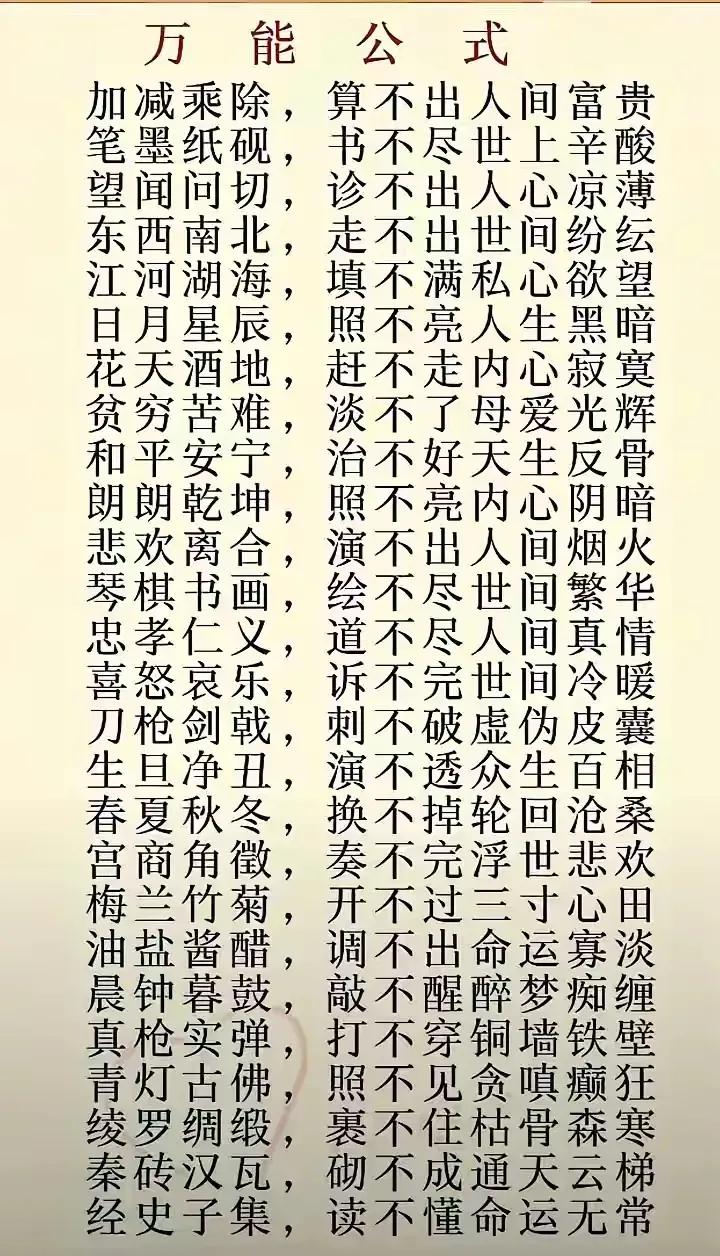 万能公式
加减乘除，算不出人间富贵
笔墨纸砚，书不尽世上辛酸
望闻问切，诊不出人心凉薄
东西南北，走不出世间纷纭
江河湖海，填不满私心欲望
日月星辰，照不亮人生黑暗
花天酒地，赶不走内心寂寞
贫穷苦难，淡不了母爱光辉
和平安宁，治不好天生反骨
朗朗乾坤，照不亮内心阴暗
悲欢离合，演不出人间烟火
琴棋书画，绘不尽世间繁华
忠孝仁义，道不尽人间真情
喜怒哀乐，诉不完世间冷暖
刀枪剑戟，刺不破虚伪皮囊
生旦净丑，演不透众生百相
春夏秋冬，换不掉轮回沧桑
宫商角徵，奏不完浮世悲欢
梅兰竹菊，开不过三寸心田
油盐酱醋，调不出命运寡淡
晨钟暮鼓，敲不醒醉梦痴缠
真枪实弹，打不穿铜墙铁壁
青灯古佛，照不见贪嗔癫狂
绫罗绸缎，裹不住枯骨森寒
秦砖汉瓦，砌不成通天云梯
经史子集，读不懂命运无常